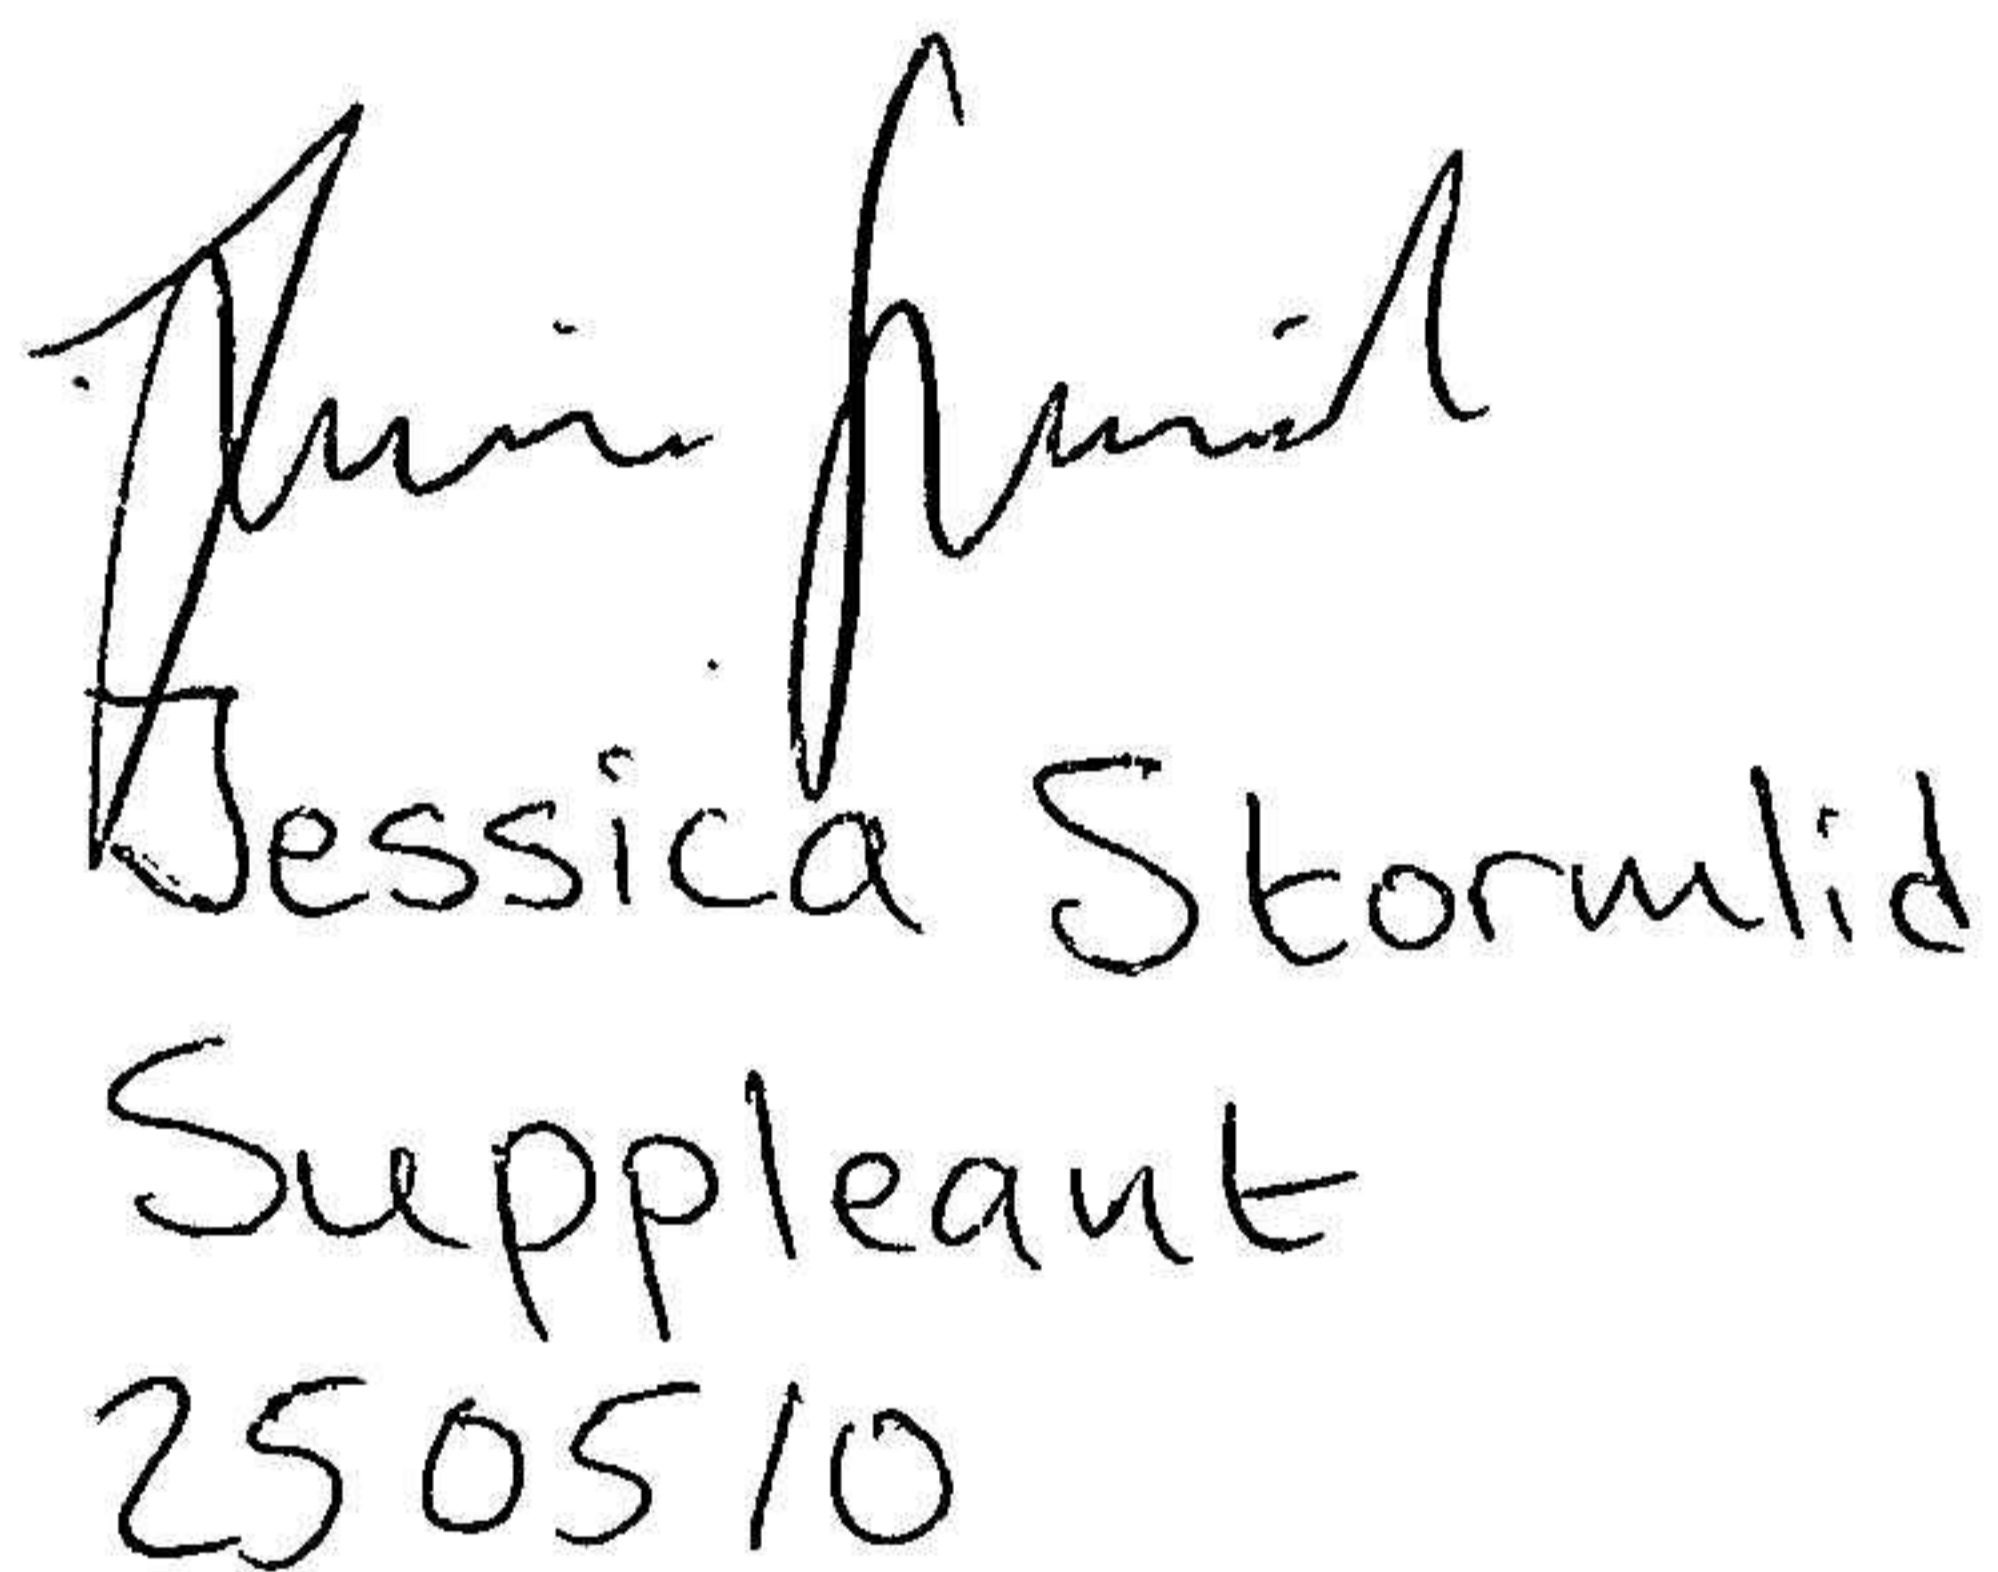 Jessica Stormlid
Suppleant
250510